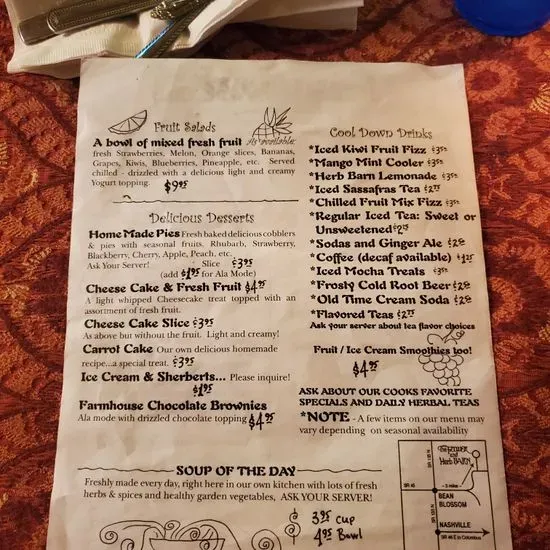 Fruit Salads
As available
A bowl of mixed fresh fruit
fresh Strawberries, Melon, Orange slices, Bananas,
Grapes, Kiwis, Blueberries, Pineapple, etc. Served
chilled - drizzled with a delicious light and creamy
Yogurt topping. $9.95
Delicious Desserts
Home Made Pies Fresh baked delicious cobblers
& pies with seasonal fruits. Rhubarb, Strawberry,
Blackberry, Cherry, Apple, Peach, etc.
Ask Your Server! Slice $3.95
(add $1.95 for Ala Mode)
Cheese Cake & Fresh Fruit $4.95
A light whipped Cheesecake treat topped with an
assortment of fresh fruit.
Cheese Cake Slice $3.95
As above but without the fruit. Light and creamy!
Carrot Cake Our own delicious homemade
recipe...a special treat. $3.95
Ice Cream & Sherberts... Please inquire!
$1.95
Farmhouse Chocolate Brownies
Ala mode with drizzled chocolate topping $4.95
Cool Down Drinks
*Iced Kiwi Fruit Fizz
*Mango Mint Cooler
*Herb Barn Lemonade
*Iced Sassafras Tea
*Chilled Fruit Mix Fizz
*Regular Iced Tea: Sweet or
Unsweetened
*Sodas and Ginger Ale
*Coffee (decaf available)
*Iced Mocha Treats
*Frosty Cold Root Beer
*Old Time Cream Soda
*Flavored Teas
Ask your server about tea flavor choices
Fruit / Ice Cream Smoothies too!
$4.95
ASK ABOUT OUR COOKS FAVORITE
SPECIALS AND DAILY HERBAL TEAS
*NOTE - A few items on our menu may
vary depending on seasonal availability
SOUP OF THE DAY
Freshly made every day, right here in our own kitchen with lots of fresh
herbs & spices and healthy garden vegetables, ASK YOUR SERVER!
3.95 Cup
4.95 Bowl
and
Herb BARN
SR 135 N
SR 45
~ 3 miles ~
BEAN
BLOSSOM
SR 135 N
NASHVILLE
SR 46 E to Columbus